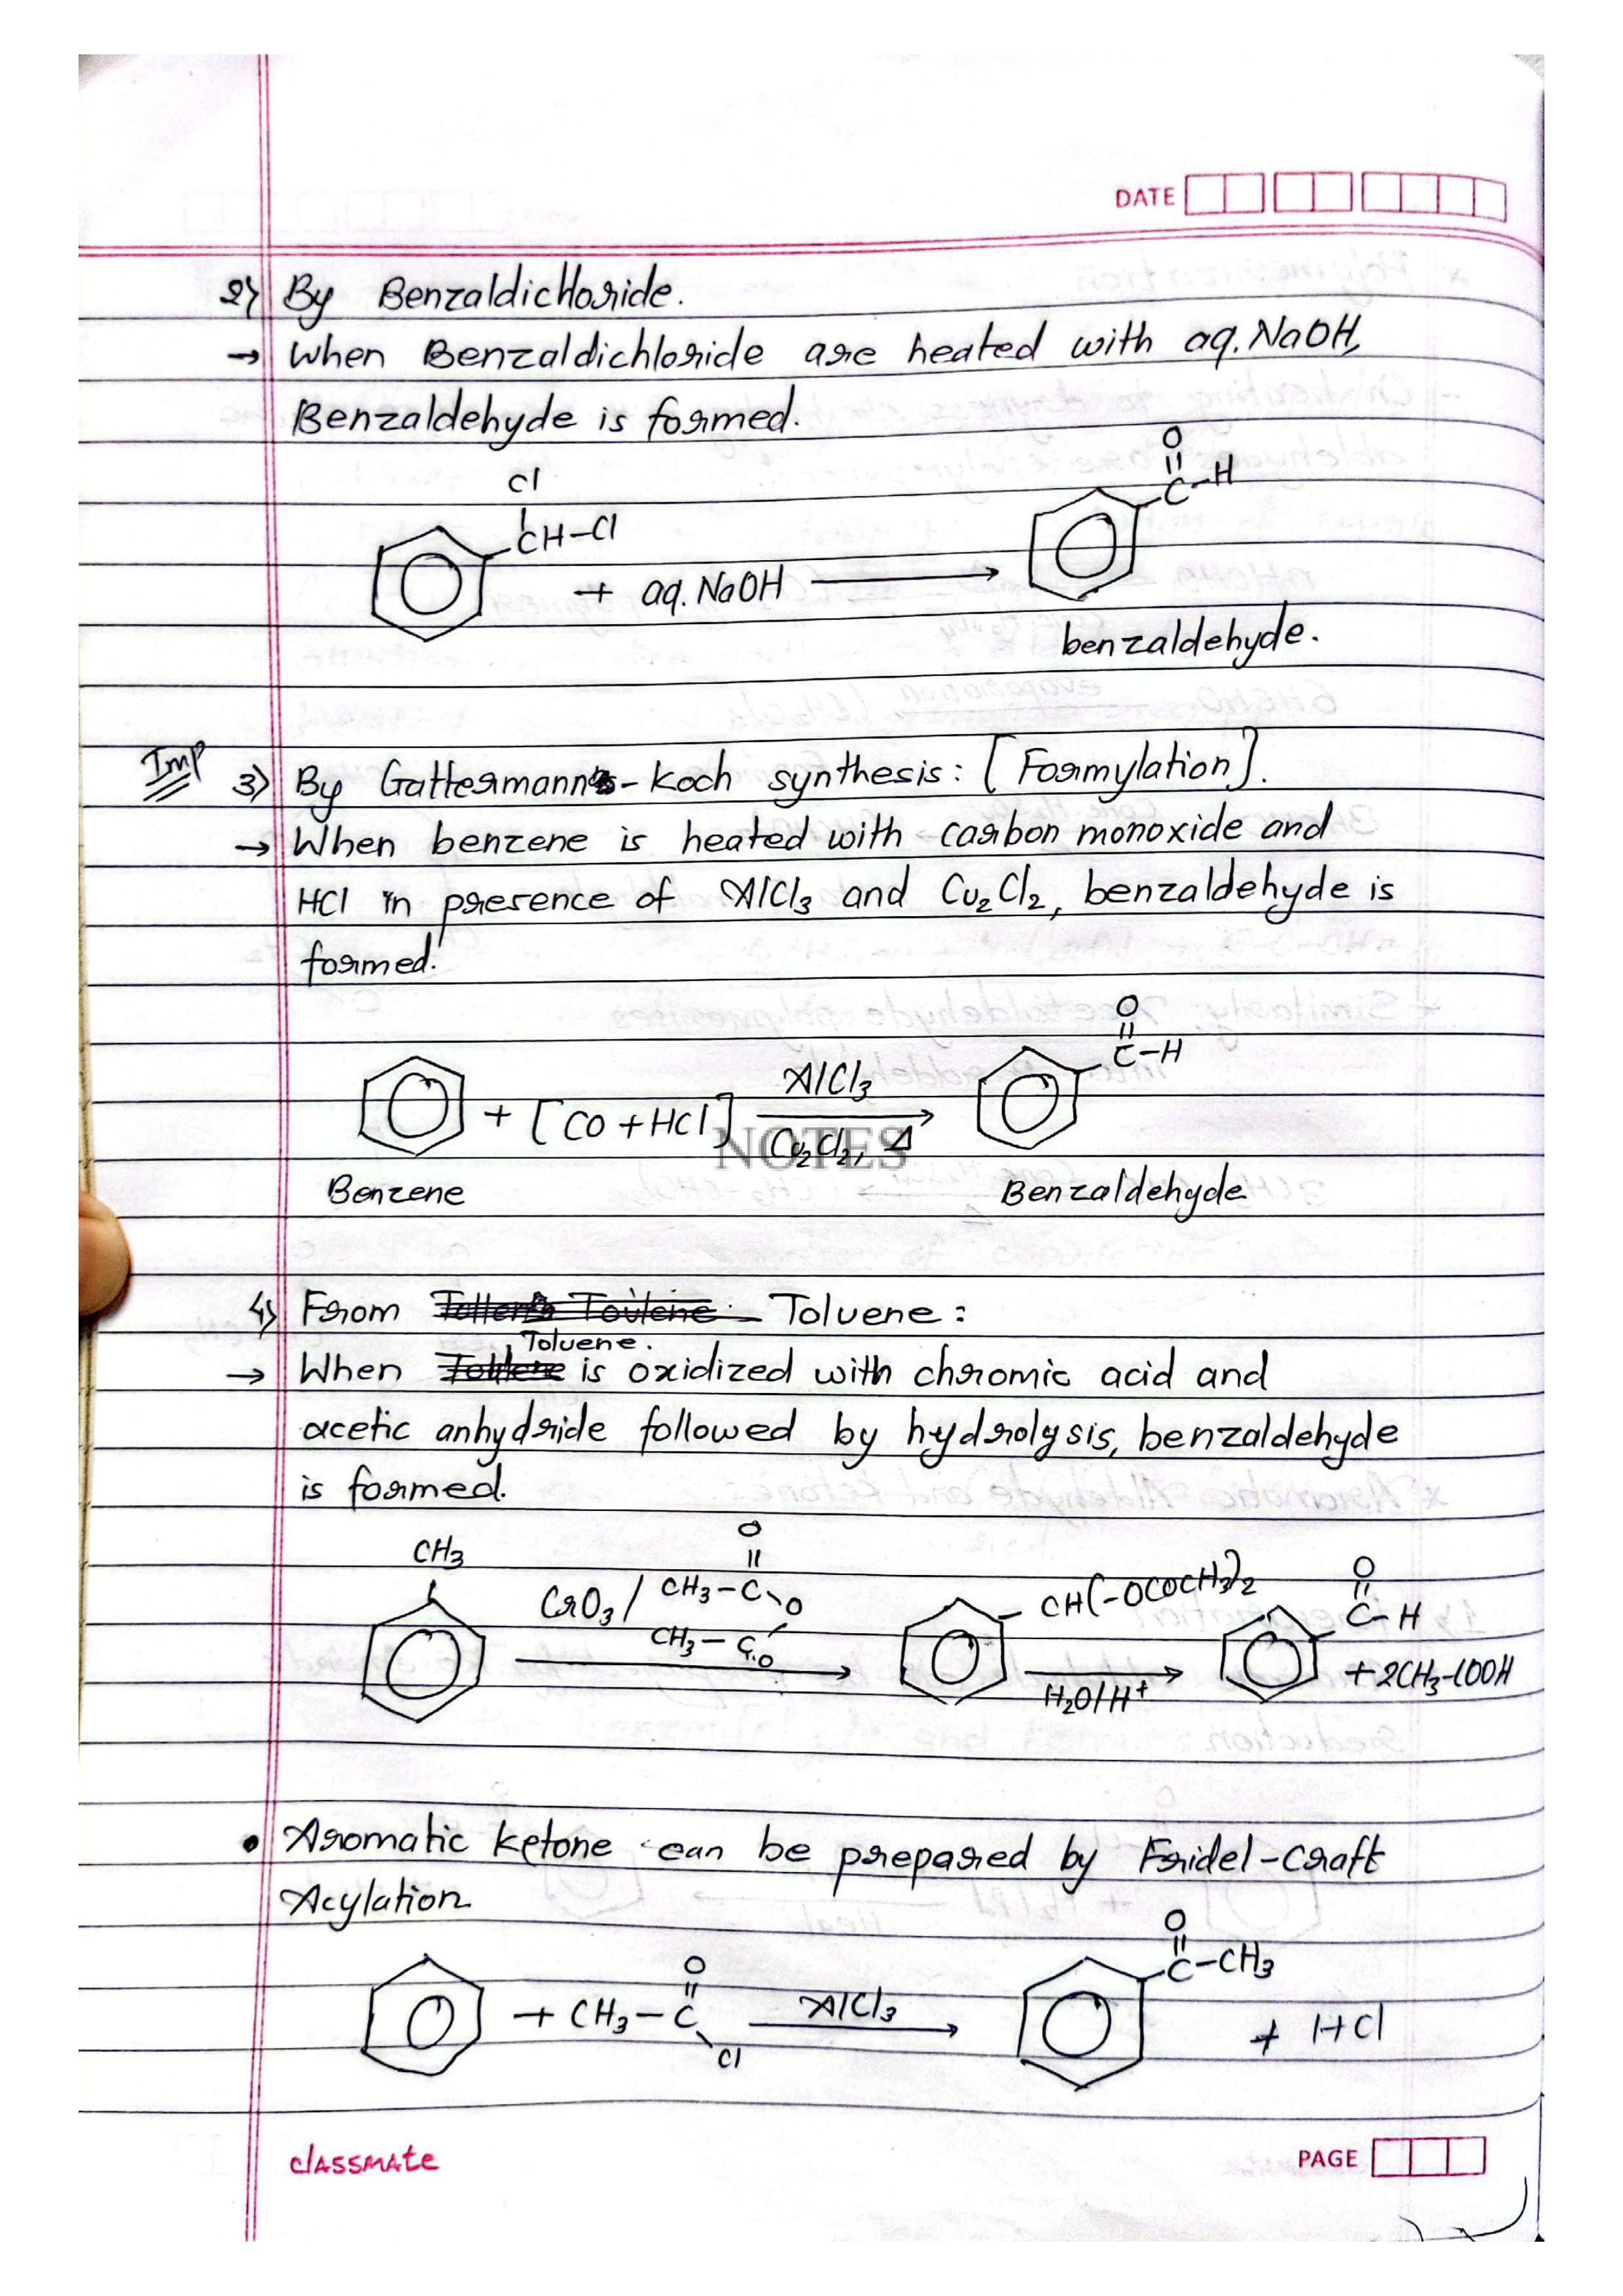 DATE
2) By Benzaldichloride.
→ When Benzaldichloride are heated with aq. NaOH,
Benzaldehyde is formed.
Cl
CH-Cl
+ aq. NaOH →
O
C-H
benzaldehyde.
Imp
3) By Gattermann-Koch synthesis: [Formylation].
→ When benzene is heated with carbon monoxide and
HCl in presence of AlCl3 and Cu2Cl2, benzaldehyde is
formed.
+ [CO + HCl] AlCl3 → Cu2Cl2, Δ
O
C-H
NOTES
Benzene Benzaldehyde
4) From Toluene:
Toluene.
→ When is oxidized with chromic acid and
acetic anhydride followed by hydrolysis, benzaldehyde
is formed.
CH3
CrO3 / CH3-C
O
O
CH3-C=O
→
CH(-OCOCH3)2
→ H2O/H+
O
C-H
+ 2CH3-COOH
• Aromatic ketone can be prepared by Fridel-Craft
Acylation
+ CH3-C
O
Cl
AlCl3 →
O
C-CH3
+ HCl
classmate
PAGE